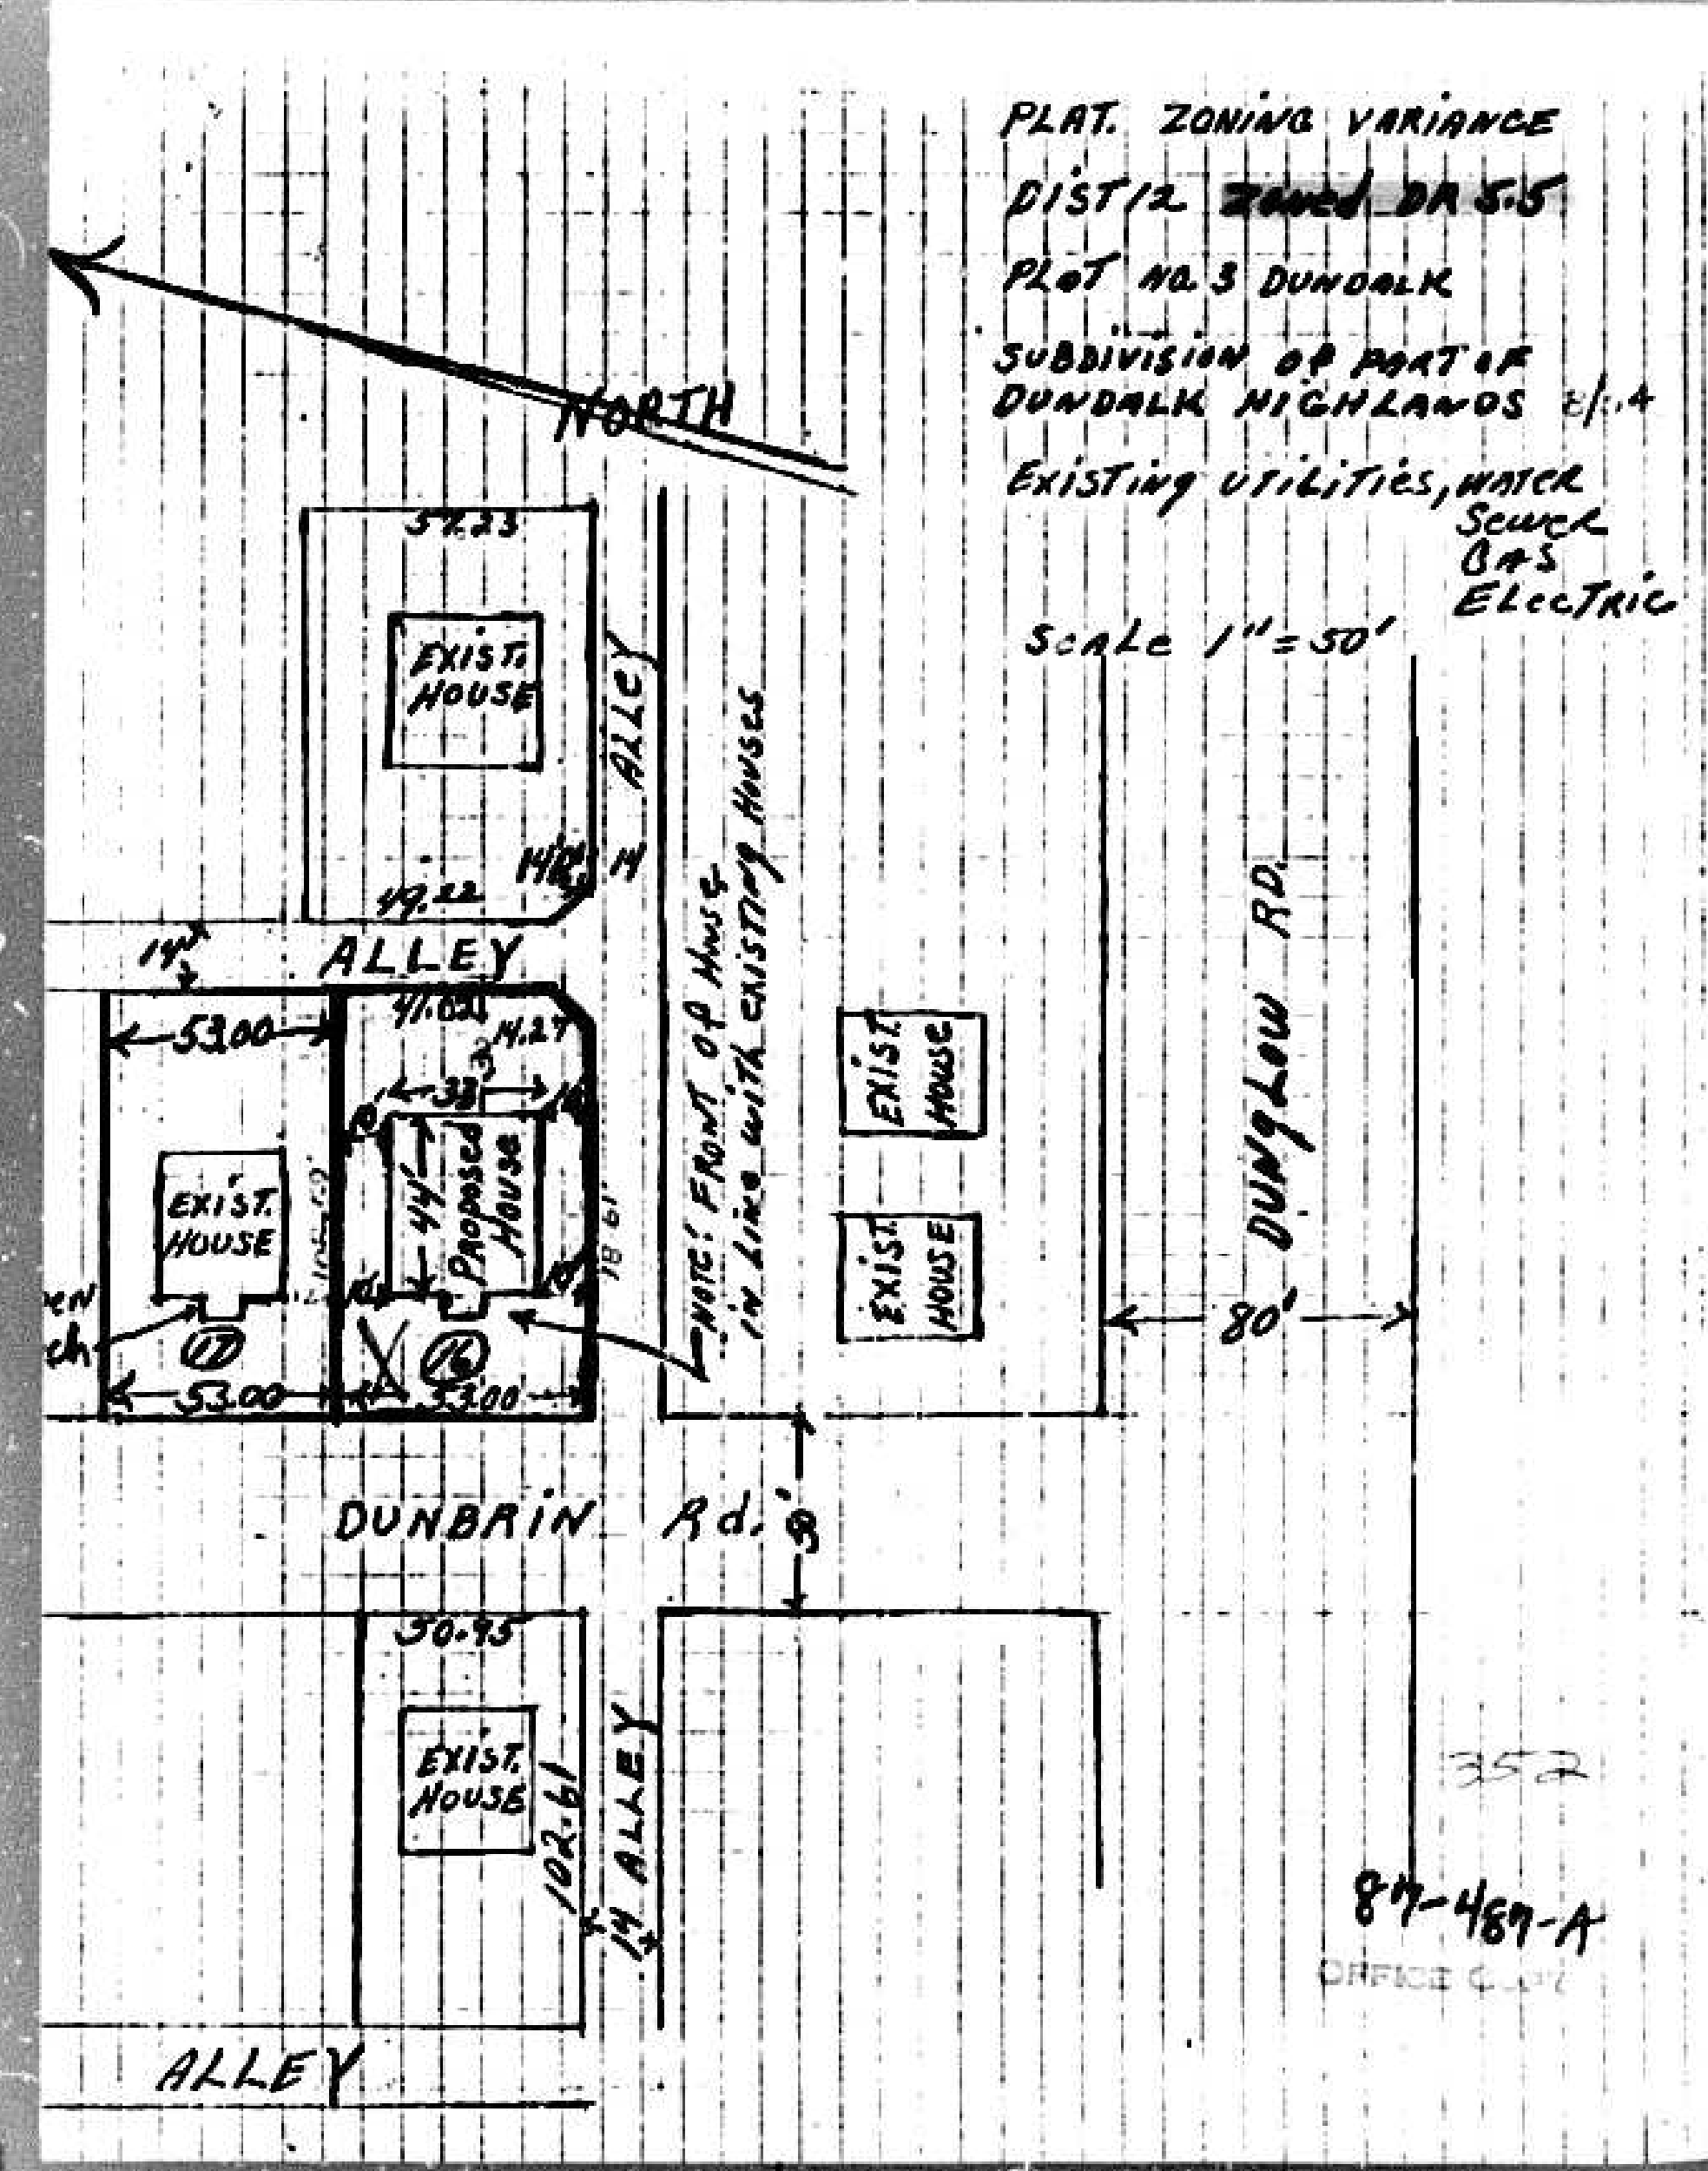 PLAT. ZONING VARIANCE
DIST 12 Zoned DR 5.5
PLOT NO. 3 DUNDALK
SUBDIVISION OF PART OF
DUNDALK HIGHLANDS
EXISTING UTILITIES, WATER
SEWER
GAS
ELECTRIC
SCALE 1" = 50'
NORTH
57.23
EXIST.
HOUSE
ALLEY
14
49.22
ALLEY
53.00
41.02
14.27
33'
44'
PROPOSED
HOUSE
EXIST.
HOUSE
10'
10'
10'
17
16
53.00
53.00
NOTE: FRONT OF HOUSE
IN LINE WITH EXISTING HOUSES
EXIST.
HOUSE
EXIST.
HOUSE
DUNGLOW RD.
80'
DUNBRIN Rd.
50'
50.95
EXIST.
HOUSE
102.61
14 ALLEY
ALLEY
352
87-487-A
OFFICE COPY